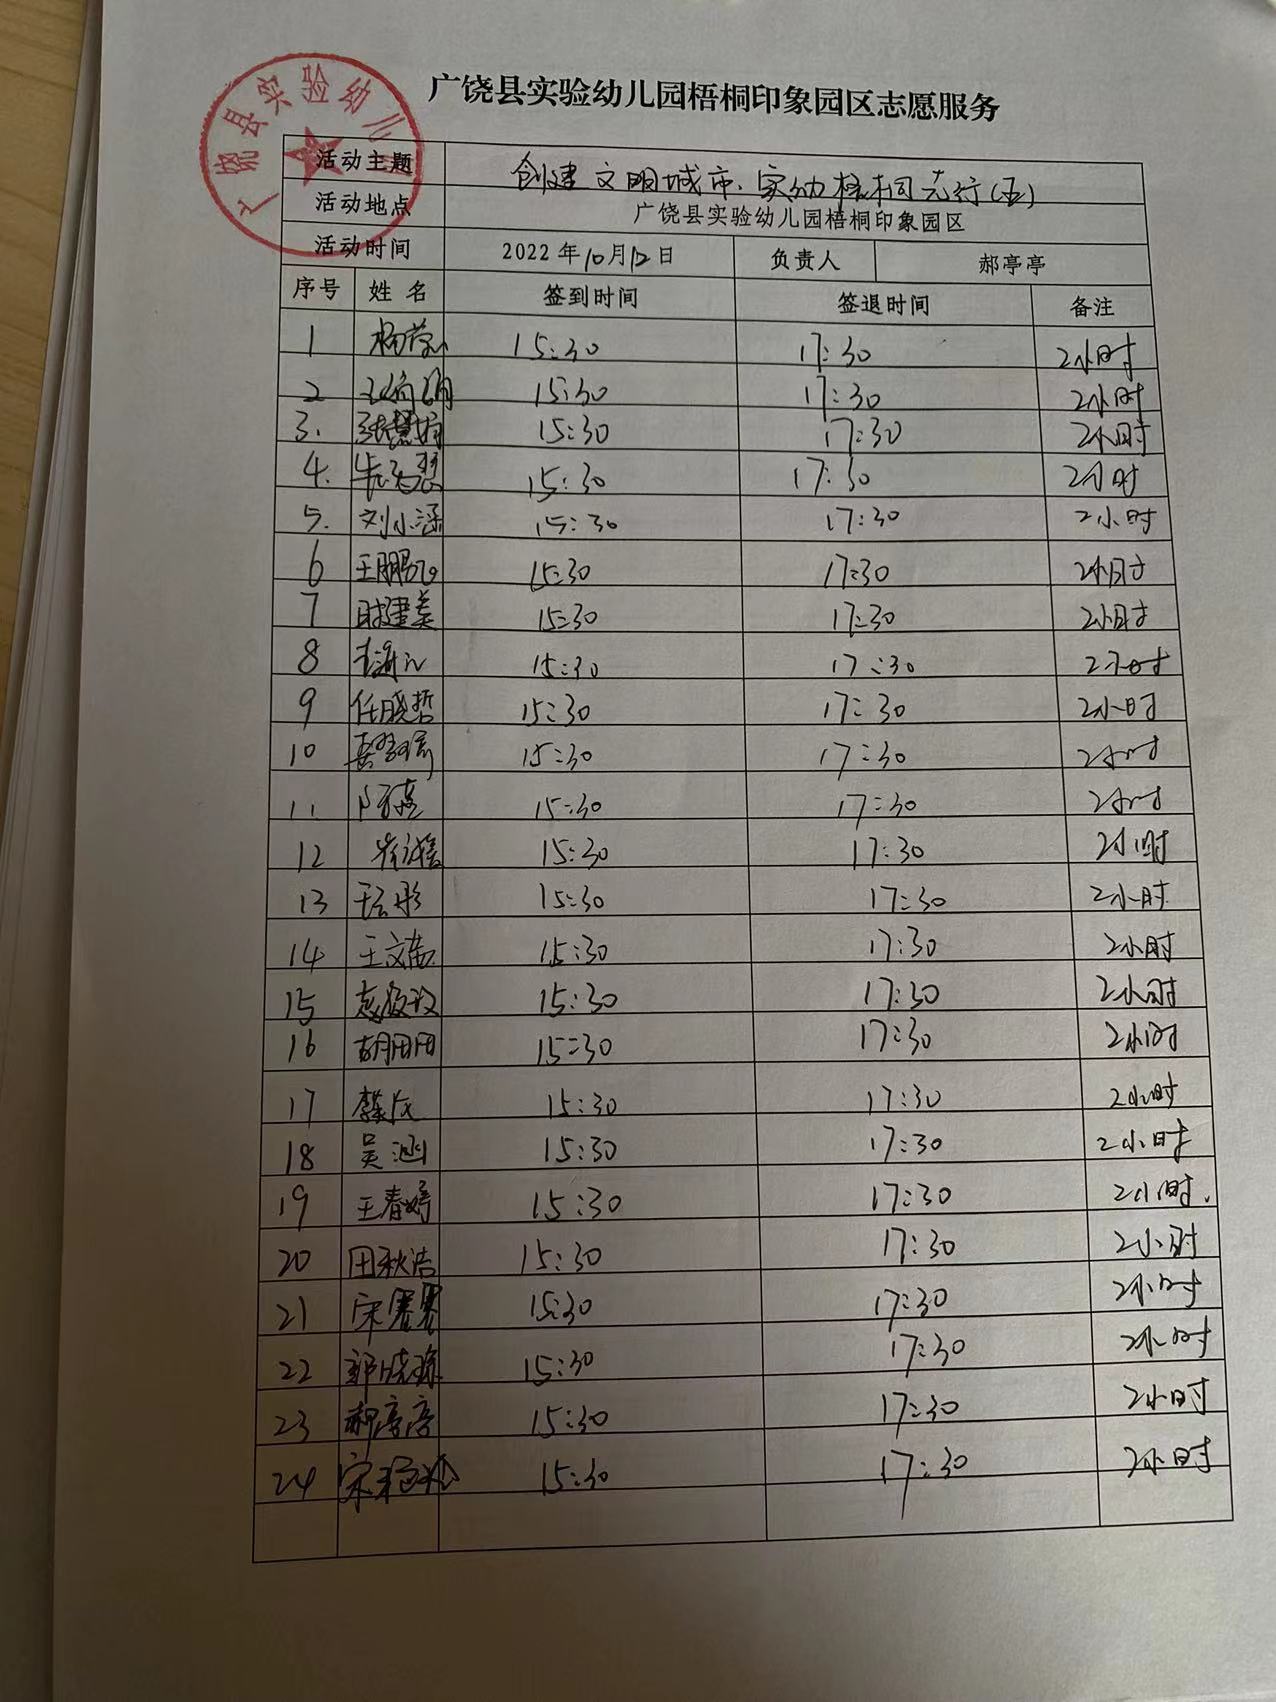 广饶县实验幼儿园梧桐印象园区志愿服务
广饶县实验幼儿
活动主题 创建文明城市、实幼梧桐先行(五)
活动地点 广饶县实验幼儿园梧桐印象园区
活动时间 2022年10月12日 负责人 郝亭亭
序号 姓名 签到时间 签退时间 备注
1 15:30 17:30 2小时
2 15:30 17:30 2小时
3. 张慧娟 15:30 17:30 2小时
4. 15:30 17:30 2小时
5. 刘小涵 15:30 17:30 2小时
6 王鹏飞 15:30 17:30 2小时
7 时建美 15:30 17:30 2小时
8 15:30 17:30 2小时
9 任晓哲 15:30 17:30 2小时
10 15:30 17:30 2小时
11 15:30 17:30 2小时
12 15:30 17:30 2小时
13 15:30 17:30 2小时
14 王文茜 15:30 17:30 2小时
15 15:30 17:30 2小时
16 胡田田 15:30 17:30 2小时
17 15:30 17:30 2小时
18 吴涵 15:30 17:30 2小时
19 王春婷 15:30 17:30 2小时.
20 田秋洁 15:30 17:30 2小时
21 宋赛赛 15:30 17:30 2小时
22 郭晓琼 15:30 17:30 2小时
23 郝亭亭 15:30 17:30 2小时
24 15:30 17:30 2小时